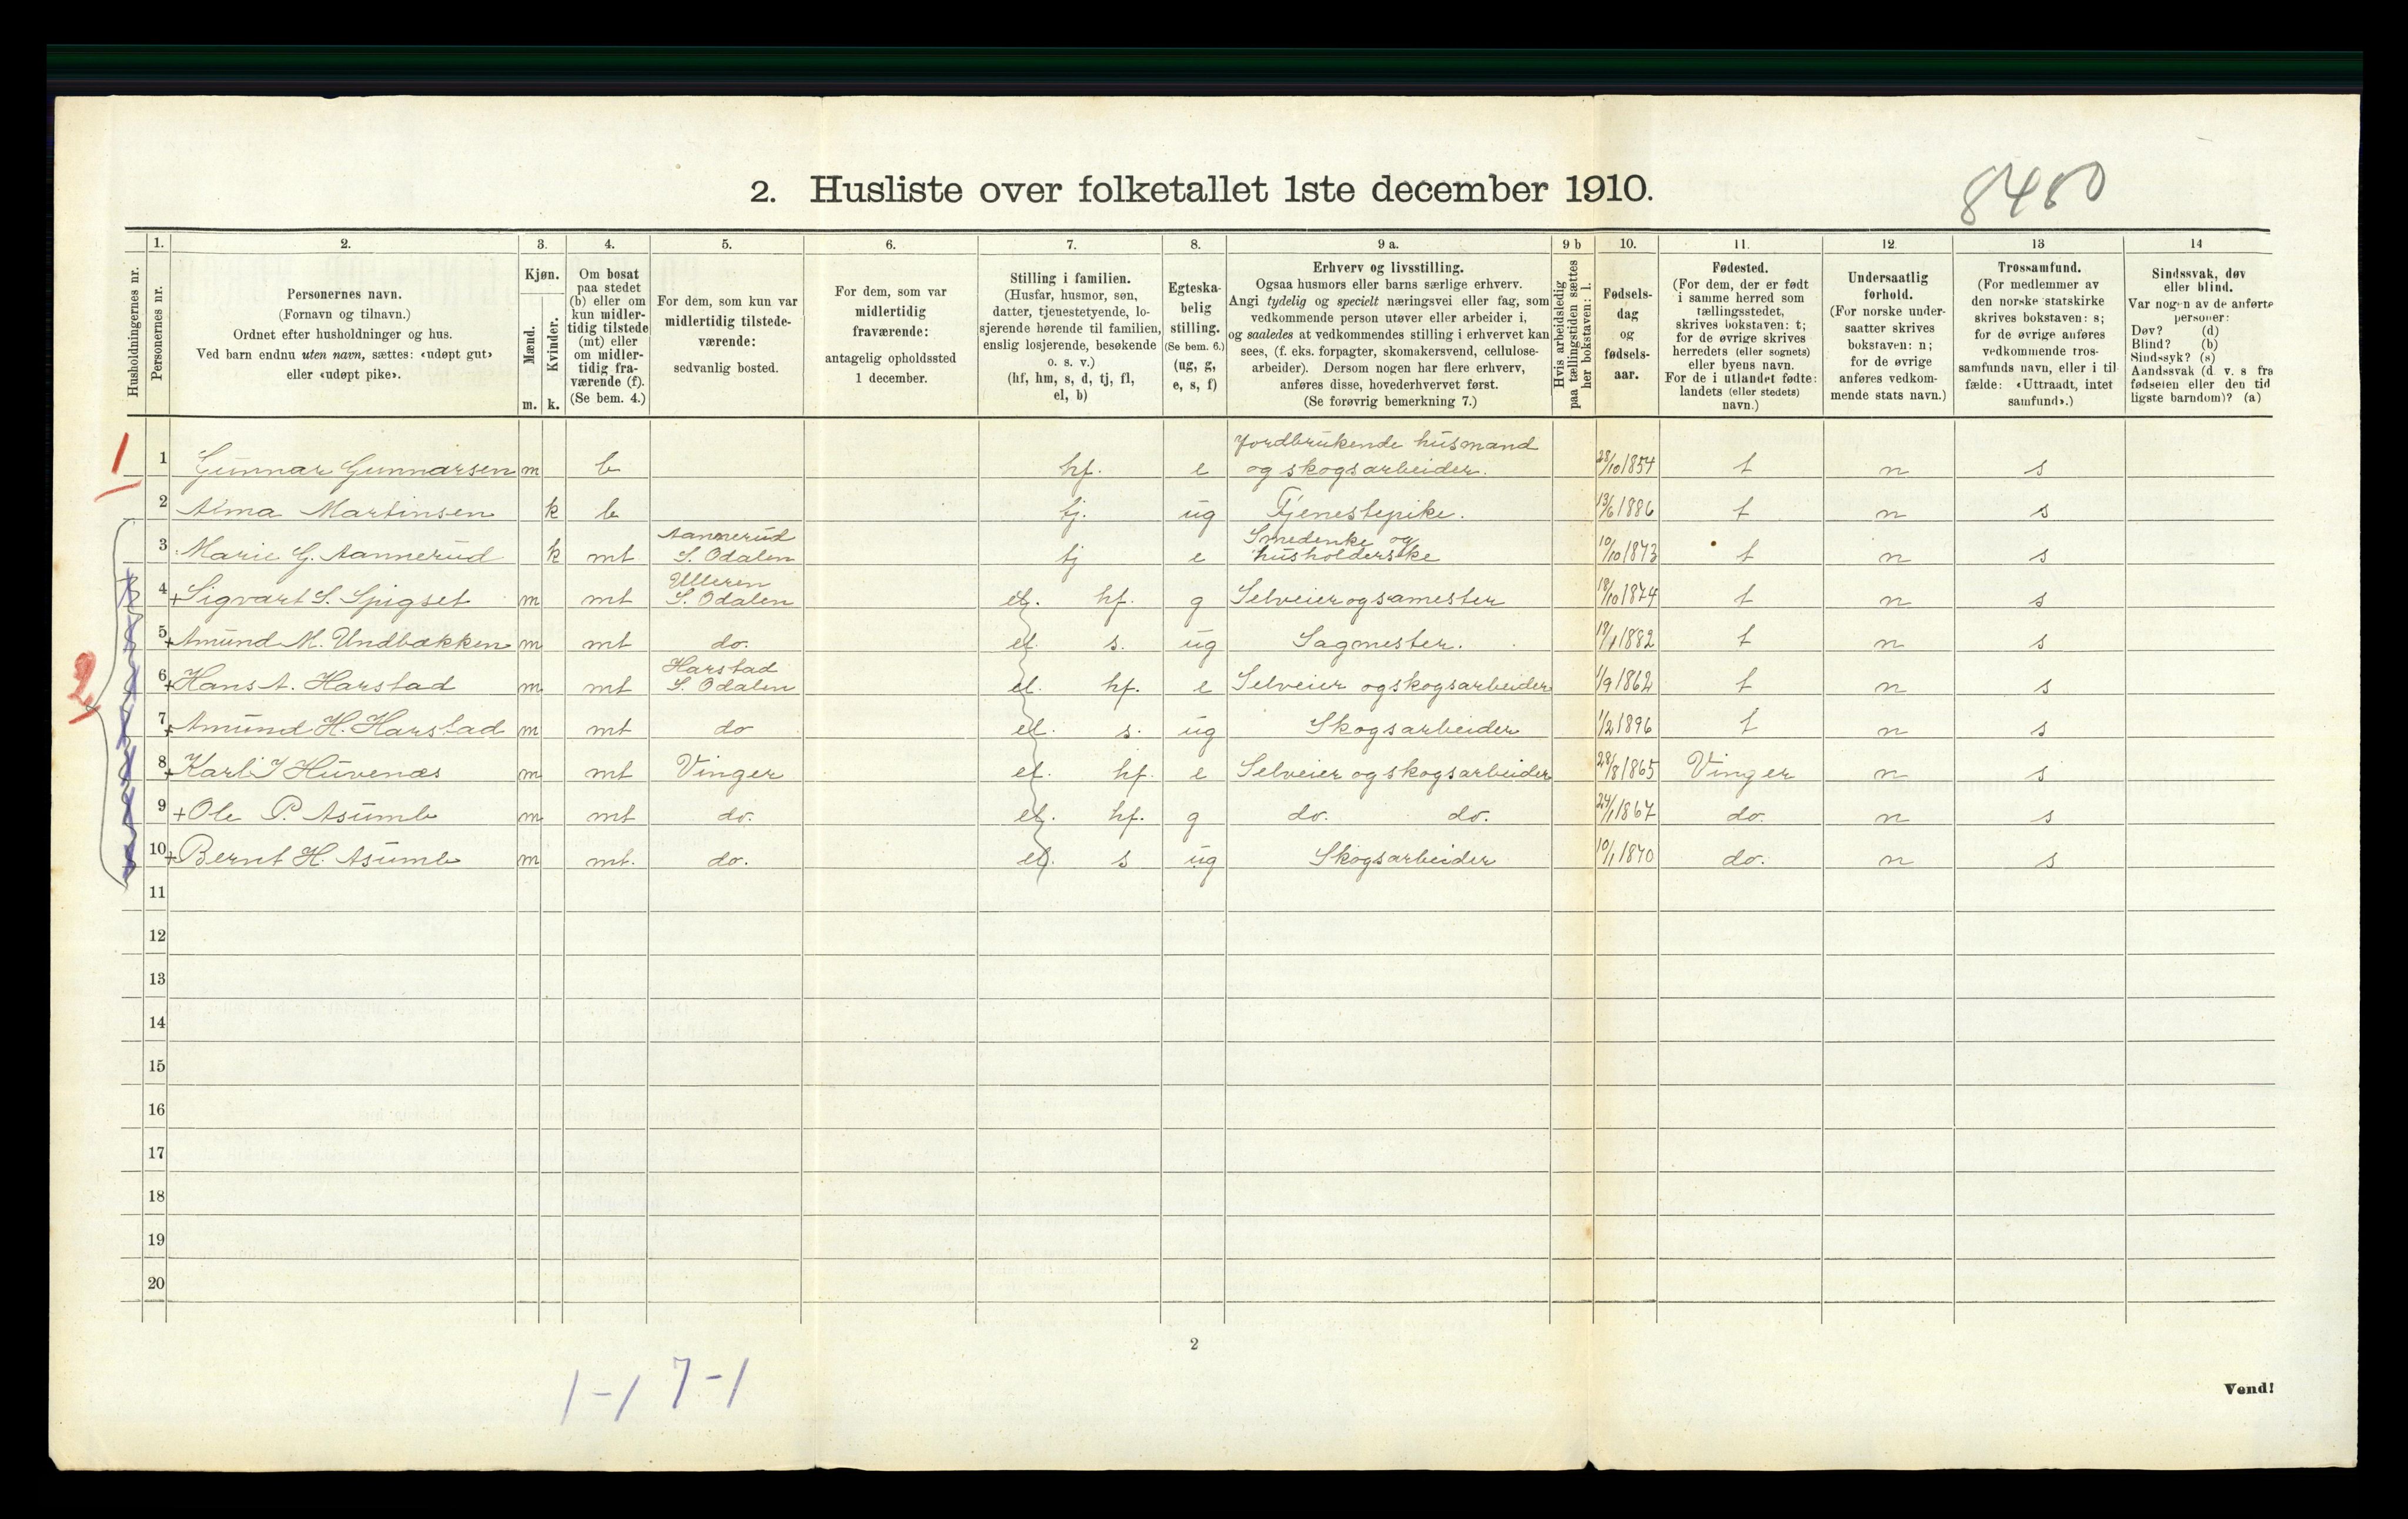 2. Husliste over folketallet 1ste december 1910.
8480
Husholdningernes nr.
1.
Personernes nr.
2.
Personernes navn.
(Fornavn og tilnavn.)
Ordnet efter husholdninger og hus.
Ved barn endnu uten navn, sættes: «udøpt gut»
eller «udøpt pike».
3.
Kjøn.
Mænd.
Kvinder.
m. k.
4.
Om bosat
paa stedet
(b) eller om
kun midler-
tidig tilstede
(mt) eller
om midler-
tidig fra-
værende (f).
(Se bem. 4.)
5.
For dem, som kun var
midlertidig tilstede-
værende:
sedvanlig bosted.
6.
For dem, som var
midlertidig
fraværende:
antagelig opholdssted
1 december.
7.
Stilling i familien.
(Husfar, husmor, søn,
datter, tjenestetyende, lo-
sjerende hørende til familien,
enslig losjerende, besøkende
o. s. v.)
(hf, hm, s, d, tj, fl,
el, b)
8.
Egteska-
belig
stilling.
(Se bem. 6.)
(ug, g,
e, s, f)
9 a.
Erhverv og livsstilling.
Ogsaa husmors eller barns særlige erhverv.
Angi tydelig og specielt næringsvei eller fag, som
vedkommende person utøver eller arbeider i,
og saaledes at vedkommendes stilling i erhvervet kan
sees, (f. eks. forpagter, skomakersvend, cellulose-
arbeider). Dersom nogen har flere erhverv,
anføres disse, hovederhvervet først.
(Se forøvrig bemerkning 7.)
9 b
Hvis arbeidsledig
paa tællingstiden sættes
her bokstaven: l.
10.
Fødsels-
dag
og
fødsels-
aar.
11.
Fødested.
(For dem, der er født
i samme herred som
tællingsstedet,
skrives bokstaven: t;
for de øvrige skrives
herredets (eller sognets)
eller byens navn.
For de i utlandet fødte:
landets (eller stedets)
navn.)
12
Undersaatlig
forhold.
(For norske under-
saatter skrives
bokstaven: n;
for de øvrige
anføres vedkom-
mende stats navn.)
13
Trossamfund.
(For medlemmer av
den norske statskirke
skrives bokstaven: s;
for de øvrige anføres
vedkommende tros-
samfunds navn, eller i til
fælde: «Uttraadt, intet
samfund».)
14
Sindssvak, døv
eller blind.
Var nogen av de anførte
personer:
Døv? (d)
Blind? (b)
Sindssyk? (s)
Aandssvak (d. v. s fra
fødselen eller den tid
ligste barndom)? (a)
Jordbrukende husmand
1 1 Gunnar Gunnarsen m b hf. e og skogsarbeider. 28/10 1854 t n s
2 Alma Martinsen k b tj. ug Tjenestepike. 13/6 1886 t n s
Aannerud Smedenke og
3 Marie G. Aannerud k mt S. Odalen tj e husholderske 10/10 1873 t n s
Ulleren
4 + Sigvart S. Spigset m mt S. Odalen el. hf. g Selveier og samester 18/10 1874 t n s
5 + Amund M. Undbakken m mt do. el s. ug Sagmester. 19/1 1882 t n s
Harstad
2 6 + Hans A. Harstad m mt S. Odalen el. hf. e Selveier og skogsarbeider 1/9 1862 t n s
7 + Amund H. Harstad m mt do el. s. ug Skogsarbeider 1/2 1896 t n s
8 + Karl J Huvenæs m mt Vinger el. hf. e Selveier og skogsarbeider 28/8 1865 Vinger n s
9 + Ole P. Asumb m mt do. el. hf. g do. do. 24/1 1867 do. n s
10 + Bernt H. Asumb m mt. do. el. s ug Skogsarbeider 10/1 1870 do. n s
11
12
13
14
15
16
17
18
19
20
2
1-1 7-1
Vend!